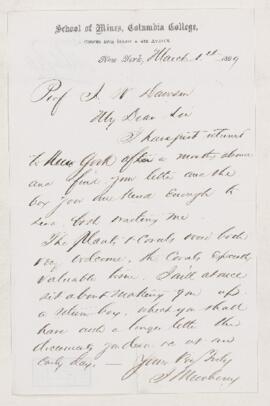 School of Mines, Columbia College,
New York, March 1st 1869
Prof J. W Dawson
My Dear Sir
I have just returned
to New York after a months absence
and find your letter and the
box you are kind enough to
send both waiting me.
The plants & Corals were both
very welcome, the Corals
valuable here. I will at once
set about making you up
a return box, which you shall
have with a longer letter
at an
early day. — Yours Very Truly
J S Newberry